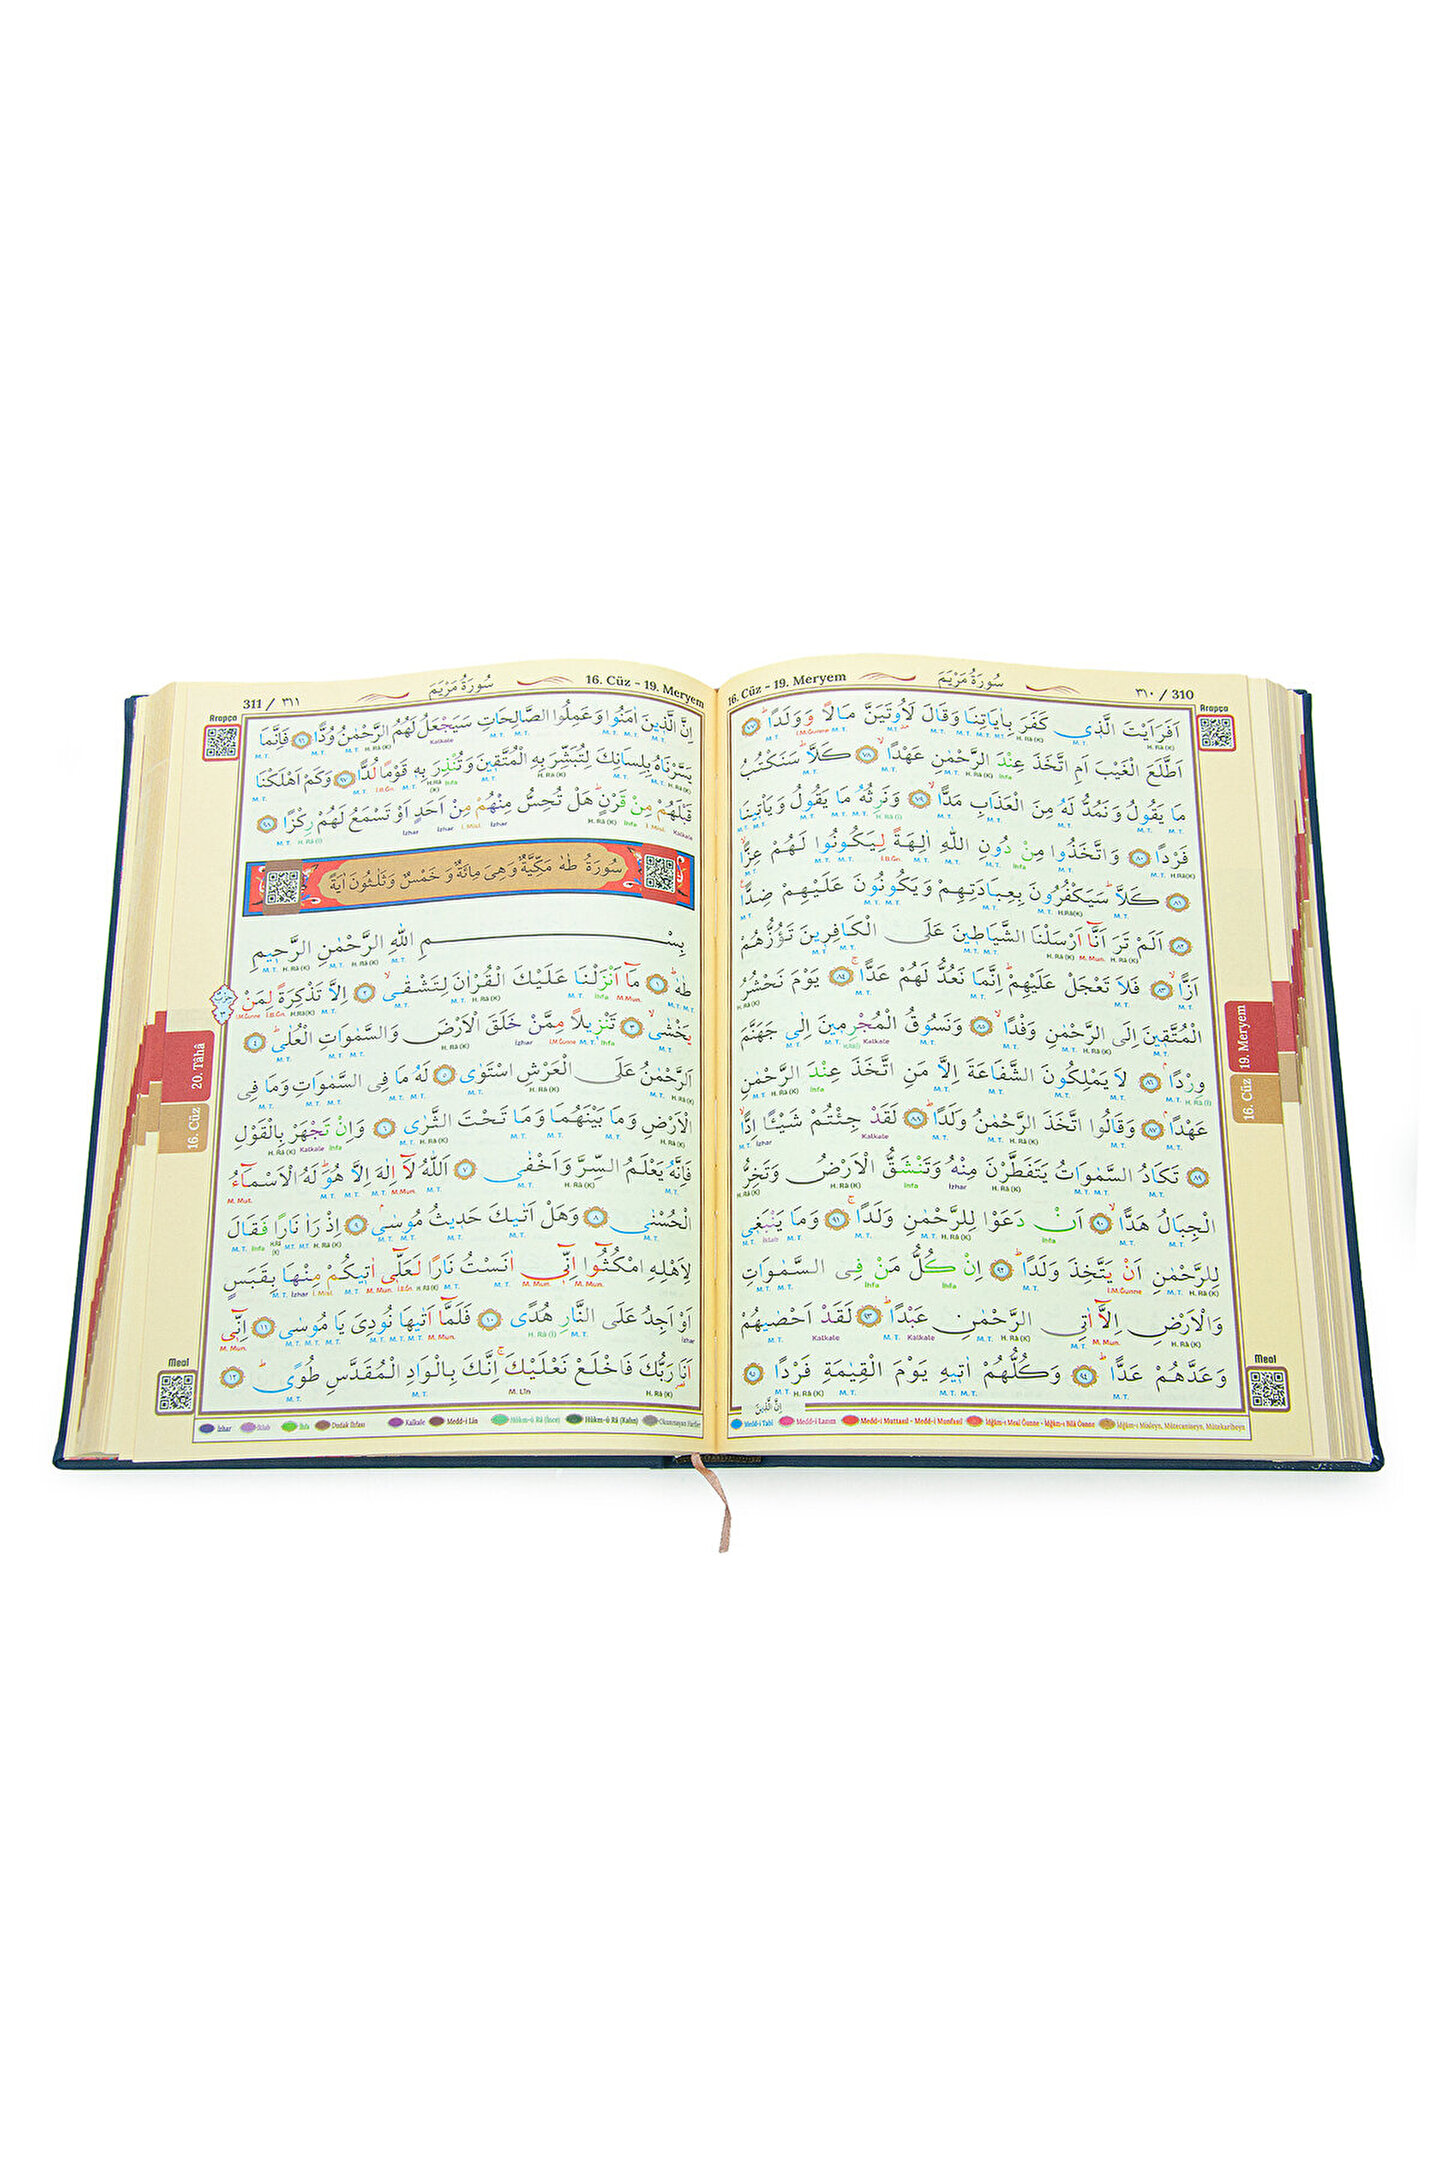 ٣١٠ / 310
سُورَةُ مَرْيَمَ
16. Cüz - 19. Meryem
Arapça
اَفَرَاَيْتَ الَّذٖى كَفَرَ بِاٰيَاتِنَا وَقَالَ لَاُوتَيَنَّ مَالاً وَوَلَدًا ﴿٧٧﴾
اَطَّلَعَ الْغَيْبَ اَمِ اتَّخَذَ عِنْدَ الرَّحْمٰنِ عَهْدًا ﴿٧٨﴾ كَلَّا سَنَكْتُبُ
مَا يَقُولُ وَنَمُدُّ لَهُ مِنَ الْعَذَابِ مَدًّا ﴿٧٩﴾ وَنَرِثُهُ مَا يَقُولُ وَيَاْتٖينَا
فَرْدًا ﴿٨٠﴾ وَاتَّخَذُوا مِنْ دُونِ اللّٰهِ اٰلِهَةً لِيَكُونُوا لَهُمْ عِزًّا
﴿٨١﴾ كَلَّا سَيَكْفُرُونَ بِعِبَادَتِهِمْ وَيَكُونُونَ عَلَيْهِمْ ضِدًّا
﴿٨٢﴾ اَلَمْ تَرَ اَنَّٓا اَرْسَلْنَا الشَّيَاطٖينَ عَلَى الْكَافِرٖينَ تَؤُزُّهُمْ
اَزًّا ﴿٨٣﴾ فَلَا تَعْجَلْ عَلَيْهِمْ اِنَّمَا نَعُدُّ لَهُمْ عَدًّا ﴿٨٤﴾ يَوْمَ نَحْشُرُ
الْمُتَّقٖينَ اِلَى الرَّحْمٰنِ وَفْدًا ﴿٨٥﴾ وَنَسُوقُ الْمُجْرِمٖينَ اِلٰى جَهَنَّمَ
وِرْدًا ﴿٨٦﴾ لَا يَمْلِكُونَ الشَّفَاعَةَ اِلَّا مَنِ اتَّخَذَ عِنْدَ الرَّحْمٰنِ
عَهْدًا ﴿٨٧﴾ وَقَالُوا اتَّخَذَ الرَّحْمٰنُ وَلَدًا ﴿٨٨﴾ لَقَدْ جِئْتُمْ شَيْـًٔا اِدًّا
﴿٨٩﴾ تَكَادُ السَّمٰوَاتُ يَتَفَطَّرْنَ مِنْهُ وَتَنْشَقُّ الْاَرْضُ وَتَخِرُّ
الْجِبَالُ هَدًّا ﴿٩٠﴾ اَنْ دَعَوْا لِلرَّحْمٰنِ وَلَدًا ﴿٩١﴾ وَمَا يَنْبَغٖى
لِلرَّحْمٰنِ اَنْ يَتَّخِذَ وَلَدًا ﴿٩٢﴾ اِنْ كُلُّ مَنْ فِى السَّمٰوَاتِ
وَالْاَرْضِ اِلَّٓا اٰتِى الرَّحْمٰنِ عَبْدًا ﴿٩٣﴾ لَقَدْ اَحْصٰيهُمْ
وَعَدَّهُمْ عَدًّا ﴿٩٤﴾ وَكُلُّهُمْ اٰتٖيهِ يَوْمَ الْقِيٰمَةِ فَرْدًا ﴿٩٥﴾
اِنَّ الَّذٖينَ
19. Meryem
16. Cüz
Meal
Medd-i Tabî Medd-i Lazım Medd-i Muttasıl - Medd-i Munfasıl İdğam-ı Meal Ğunne - İdğam-ı Bilâ Ğunne İdğam-ı Misleyn, Mütecaniseyn, Mütekaribeyn
311 / ٣١١
سُورَةُ مَرْيَمَ
16. Cüz - 19. Meryem
Arapça
اِنَّ الَّذٖينَ اٰمَنُوا وَعَمِلُوا الصَّالِحَاتِ سَيَجْعَلُ لَهُمُ الرَّحْمٰنُ وُدًّا ﴿٩٦﴾ فَاِنَّمَا
يَسَّرْنَاهُ بِلِسَانِكَ لِتُبَشِّرَ بِهِ الْمُتَّقٖينَ وَتُنْذِرَ بِهٖ قَوْمًا لُدًّا ﴿٩٧﴾ وَكَمْ اَهْلَكْنَا
قَبْلَهُمْ مِنْ قَرْنٍ هَلْ تُحِسُّ مِنْهُمْ مِنْ اَحَدٍ اَوْ تَسْمَعُ لَهُمْ رِكْزًا ﴿٩٨﴾
سُورَةُ طٰهٰ مَكِّيَّةٌ وَهِىَ مِائَةٌ وَ خَمْسٌ وَثَلٰثُونَ اٰيَةً
بِسْمِ اللّٰهِ الرَّحْمٰنِ الرَّحٖيمِ
طٰهٰ ﴿١﴾ مَٓا اَنْزَلْنَا عَلَيْكَ الْقُرْاٰنَ لِتَشْقٰى ﴿٢﴾ اِلَّا تَذْكِرَةً لِمَنْ
يَخْشٰى ﴿٣﴾ تَنْزٖيلًا مِمَّنْ خَلَقَ الْاَرْضَ وَالسَّمٰوَاتِ الْعُلٰى ﴿٤﴾
اَلرَّحْمٰنُ عَلَى الْعَرْشِ اسْتَوٰى ﴿٥﴾ لَهُ مَا فِى السَّمٰوَاتِ وَمَا فِى
الْاَرْضِ وَمَا بَيْنَهُمَا وَمَا تَحْتَ الثَّرٰى ﴿٦﴾ وَاِنْ تَجْهَرْ بِالْقَوْلِ
فَاِنَّهُ يَعْلَمُ السِّرَّ وَاَخْفٰى ﴿٧﴾ اَللّٰهُ لَٓا اِلٰهَ اِلَّا هُوَ لَهُ الْاَسْمَٓاءُ
الْحُسْنٰى ﴿٨﴾ وَهَلْ اَتٰيكَ حَدٖيثُ مُوسٰى ﴿٩﴾ اِذْ رَاٰ نَارًا فَقَالَ
لِاَهْلِهِ امْكُثُٓوا اِنّٖٓى اٰنَسْتُ نَارًا لَعَلّٖٓى اٰتٖيكُمْ مِنْهَا بِقَبَسٍ
اَوْ اَجِدُ عَلَى النَّارِ هُدًى ﴿١٠﴾ فَلَمَّٓا اَتٰيهَا نُودِىَ يَا مُوسٰى ﴿١١﴾ اِنّٖٓى
اَنَا رَبُّكَ فَاخْلَعْ نَعْلَيْكَ اِنَّكَ بِالْوَادِ الْمُقَدَّسِ طُوًى ﴿١٢﴾
20. Tâhâ
16. Cüz
Meal
İzhar İklab İhfa Dudak İhfası Kalkale Medd-i Lin Hükm-ü Râ (İnce) Hükm-ü Râ (Kalın) Okunmayan Harfler